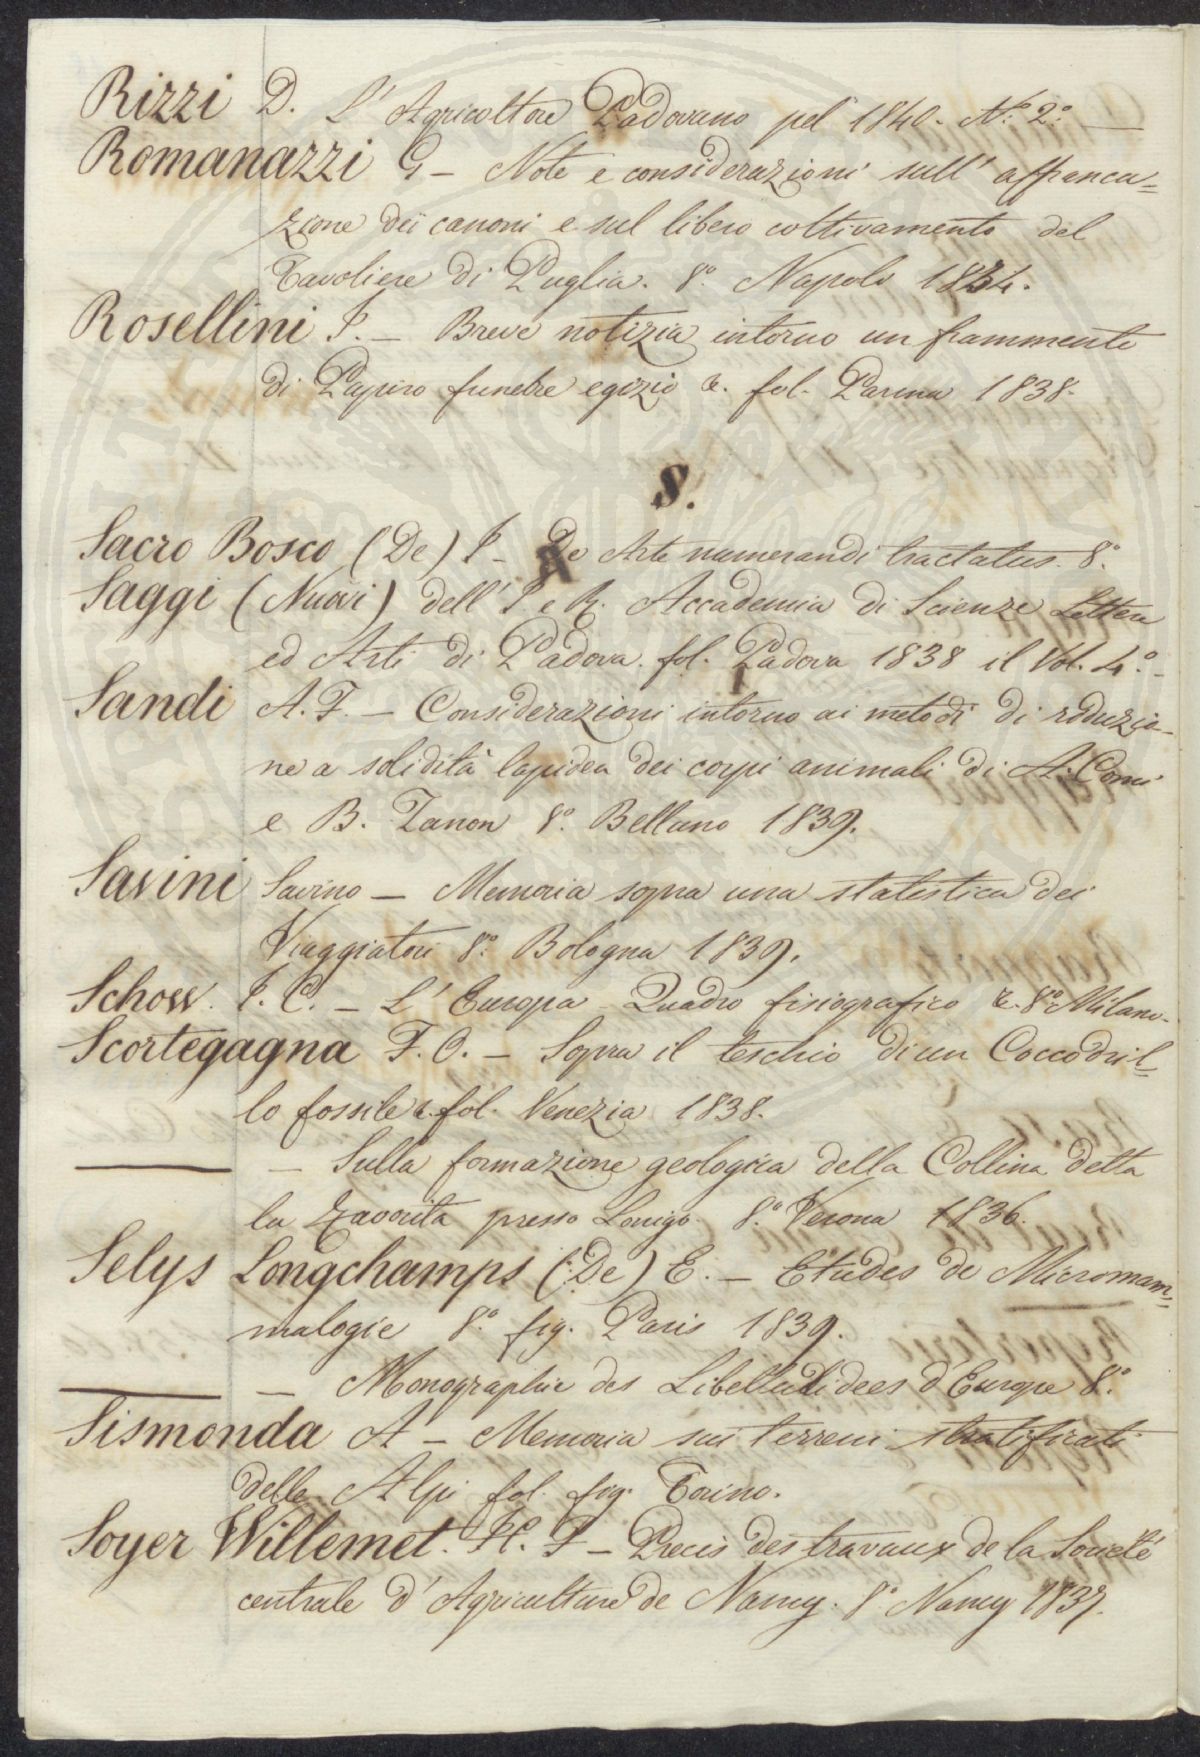 Rizzi D. L'Agricoltore Padovano pel 1840. N.° 2.° —
Romanazzi G – Note e considerazioni sull'affranca=
zione dei canoni e sul libero coltivamento del
Tavoliere di Puglia. 8.° Napoli 1834.
Rosellini I. – Breve notizia intorno un frammento
di Papiro funebre egizio &. fol. Parma 1838.
S.
Sacro Bosco (De) I – De Arte numerandi tractatus. 8.°
Saggi (Nuovi) dell'I. e R. Accademia di Scienze Lettere
ed Arti di Padova. fol. Padova 1838 il Vol. 4.° –
Sandi A. F. – Considerazioni intorno ai metodi di riduzio-
ne a solidità lapidea dei corpi animali di A. Comi
e B. Zanon 8.° Belluno 1839.
Savini Savino – Memoria sopra una statistica dei
Viaggiatori 8.° Bologna 1839.
Schow. I. C. – L'Europa Quadro fisiografico &. 8.° Milano.
Scortegagna F. O. – Sopra il teschio di un Coccodril=
lo fossile &. fol. Venezia 1838.
— – Sulla formazione geologica della Collina detta
la Favorita presso Lonigo. 8.° Verona 1836.
Selys Longchamps (De) E. – Etudes de Micromam=
malogie 8.° fig. Paris 1839.
— – Monographie des Libellulidees d'Europe 8.°
Sismonda A – Memoria sui terreni stratificati
delle Alpi fol. fig. Torino.
Soyer Willemet. H. F – Precis des travaux de la Société
centrale d'Agriculture de Nancy. 8.° Nancy 1837.